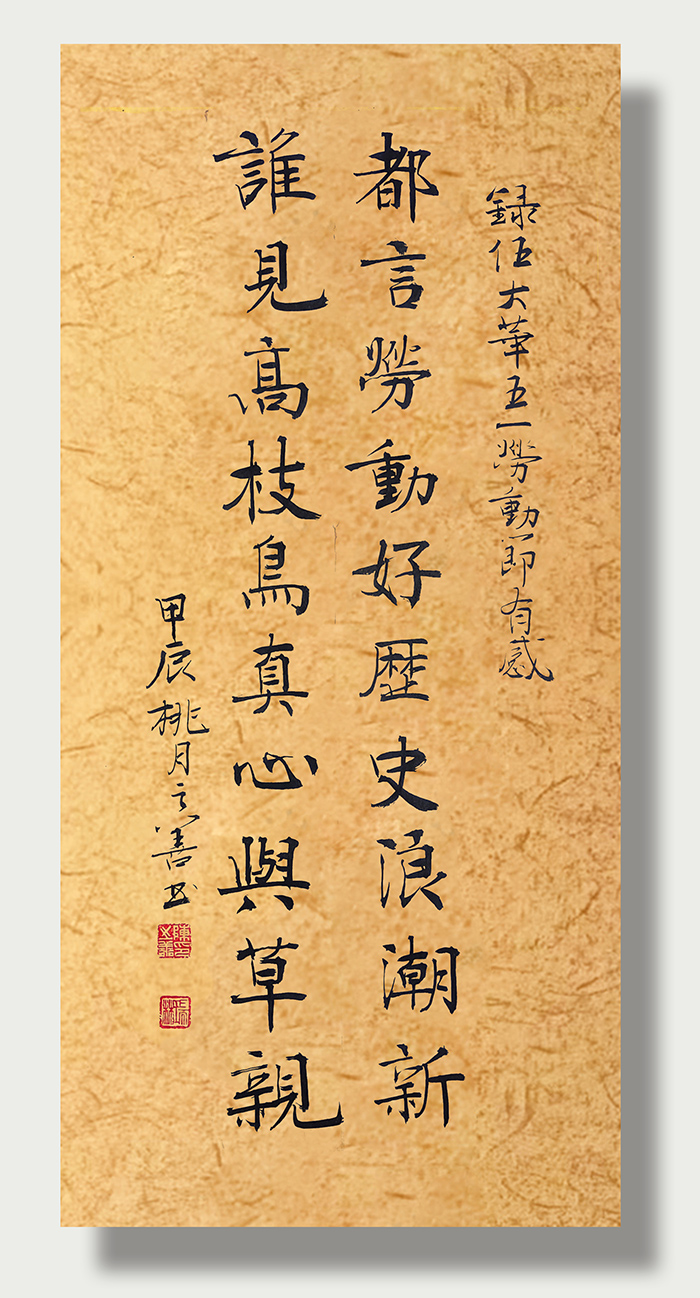 錄伍大華五一勞動節有感
都言勞動好歷史浪潮新
誰見高枝鳥真心與草親
甲辰桃月善書